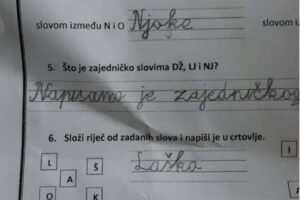 slovom između N i O Njoke
slovom
5. Što je zajedničko slovima DŽ, LJ i NJ?
Napisano je zajedničkog
6. Složi riječ od zadanih slova i napiši je u crtovlje.
L Š Laška I
A
O K